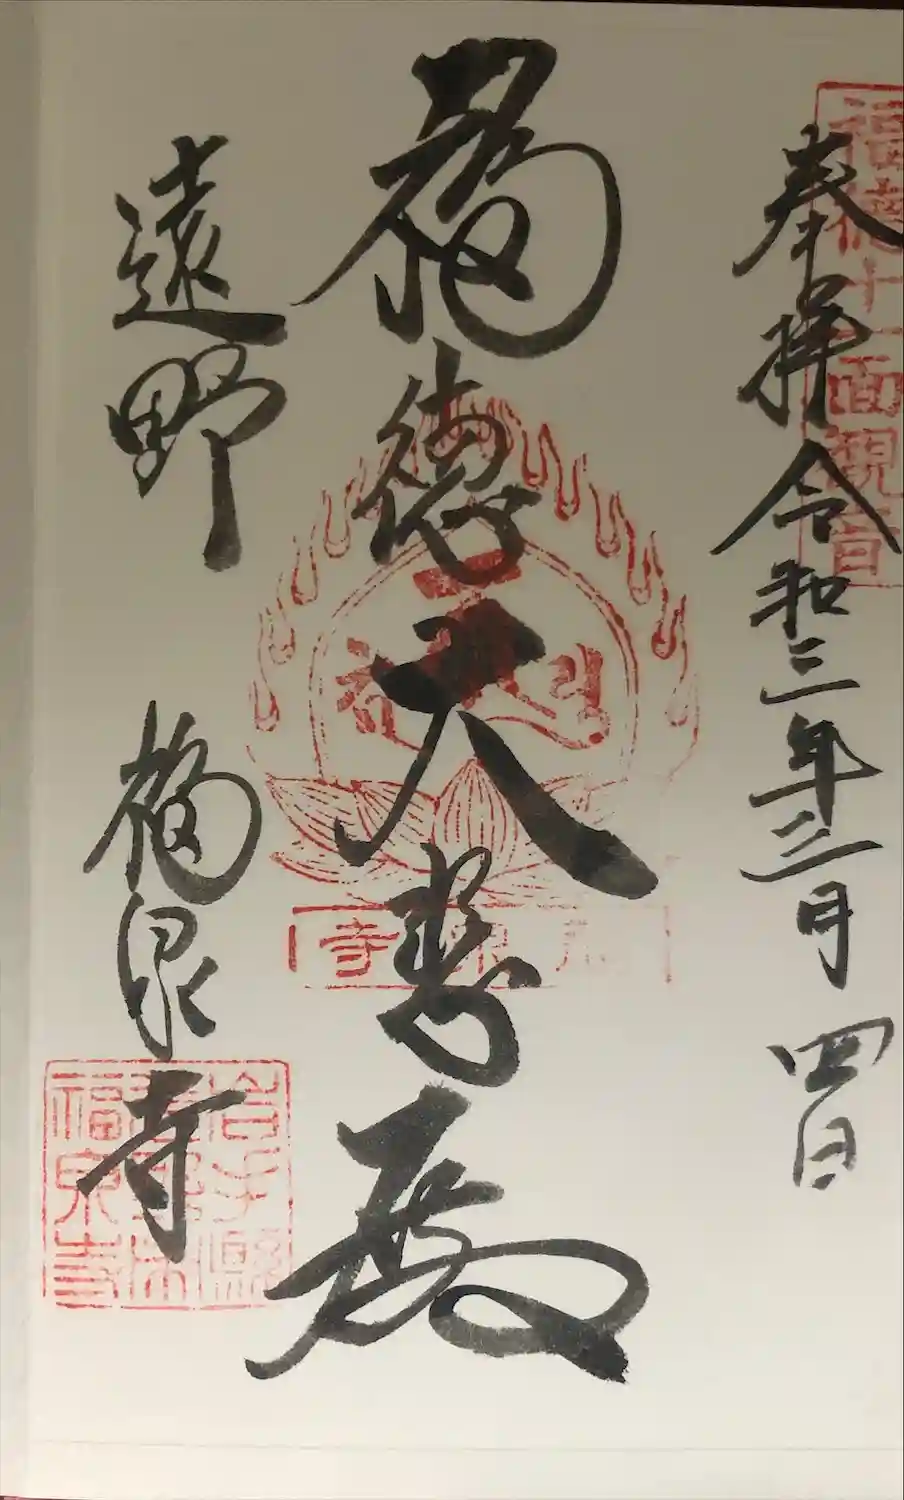 福徳十一面観音
奉拝 令和三年三月四日
福徳大悲殿
福泉寺
遠野 福泉寺
岩手縣
福泉寺